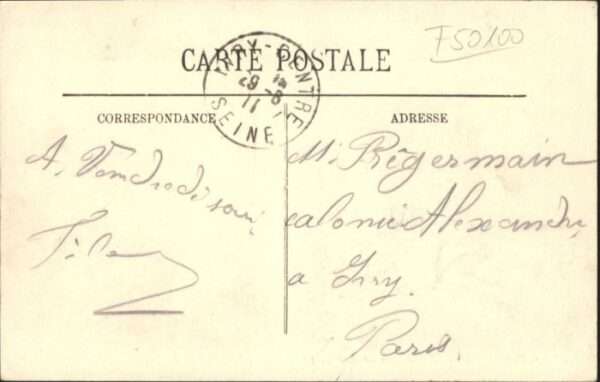 F50100
CARTE POSTALE
IVRY-CENTRE
SEINE
CORRESPONDANCE
ADRESSE
A Vendredi soir
M. Prégermain
colonie Alexandre
a Ivry
Paris.